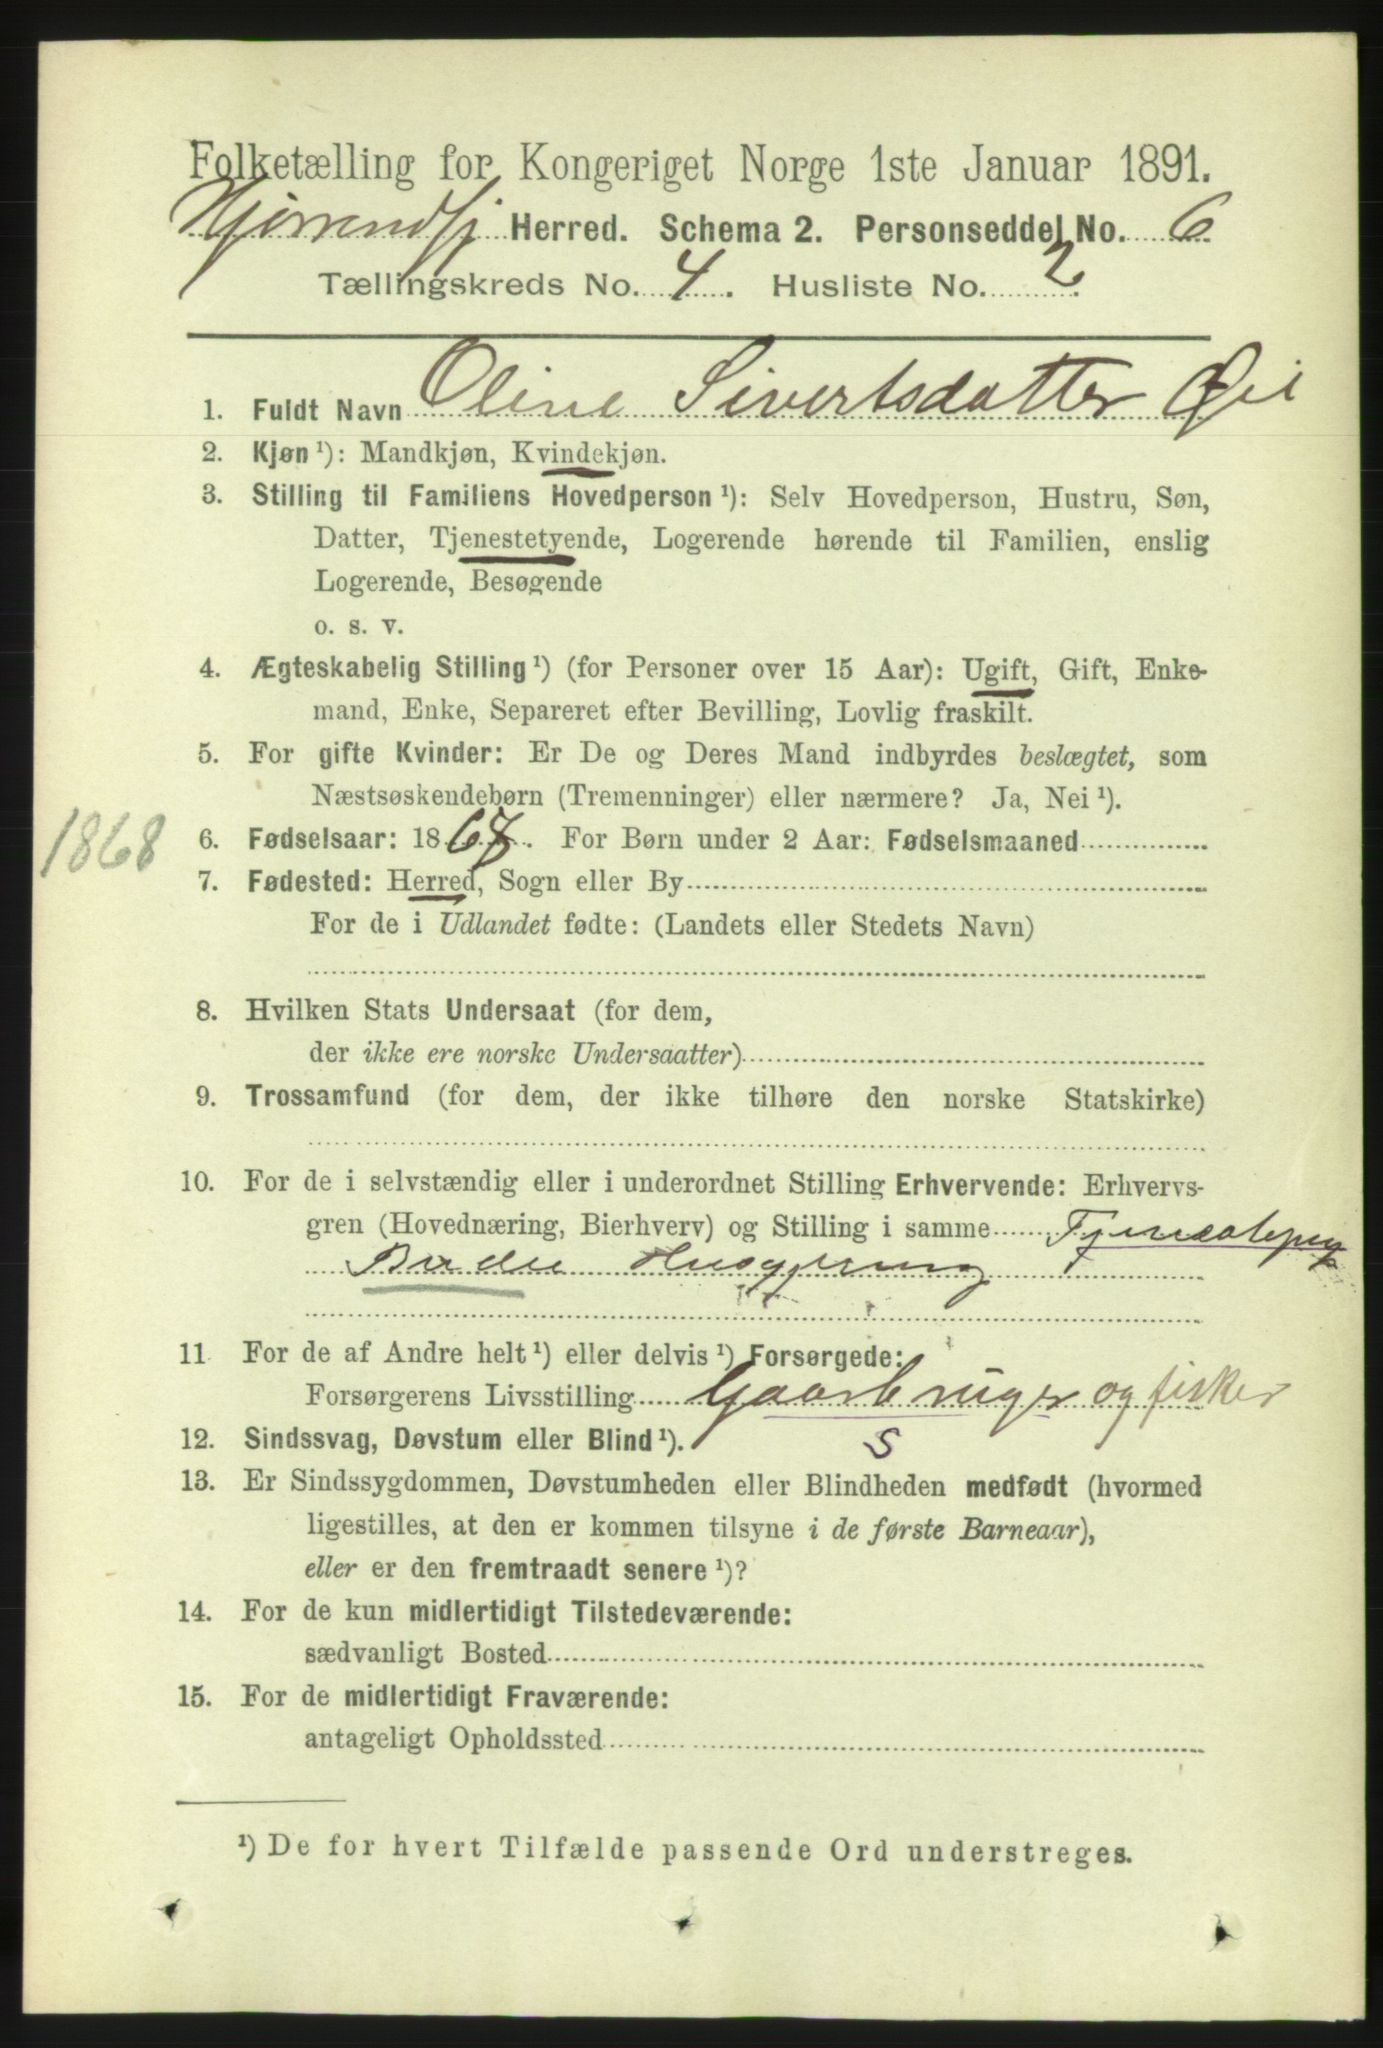 Folketælling for Kongeriget Norge 1ste Januar 1891.
Hjørrendfj Herred. Schema 2. Personseddel No. 6
Tællingskreds No. 4. Husliste No. 2.
1. Fuldt Navn Oline Sivertsdatter Øie
2. Kjøn ¹): Mandkjøn, Kvindekjøn.
3. Stilling til Familiens Hovedperson ¹): Selv Hovedperson, Hustru, Søn,
Datter, Tjenestetyende, Logerende hørende til Familien, enslig
Logerende, Besøgende
o. s. v.
4. Ægteskabelig Stilling ¹) (for Personer over 15 Aar): Ugift, Gift, Enke-
mand, Enke, Separeret efter Bevilling, Lovlig fraskilt.
5. For gifte Kvinder: Er De og Deres Mand indbyrdes beslægtet, som
Næstsøskendebørn (Tremenninger) eller nærmere? Ja, Nei ¹).
1868
6. Fødselsaar: 1868. For Børn under 2 Aar: Fødselsmaaned
7. Fødested: Herred, Sogn eller By
For de i Udlandet fødte: (Landets eller Stedets Navn)
8. Hvilken Stats Undersaat (for dem,
der ikke ere norske Undersaatter)
9. Trossamfund (for dem, der ikke tilhøre den norske Statskirke)
10. For de i selvstændig eller i underordnet Stilling Erhvervende: Erhvervs-
gren (Hovednæring, Bierhverv) og Stilling i samme
Husgjerning
11 For de af Andre helt ¹) eller delvis ¹) Forsørgede:
Forsørgerens Livsstilling Gaarbruger og fisker
S
12. Sindssvag, Døvstum eller Blind ¹).
13. Er Sindssygdommen, Døvstumheden eller Blindheden medfødt (hvormed
ligestilles, at den er kommen tilsyne i de første Barneaar),
eller er den fremtraadt senere ¹)?
14. For de kun midlertidigt Tilstedeværende:
sædvanligt Bosted
15. For de midlertidigt Fraværende:
antageligt Opholdssted
¹) De for hvert Tilfælde passende Ord understreges.